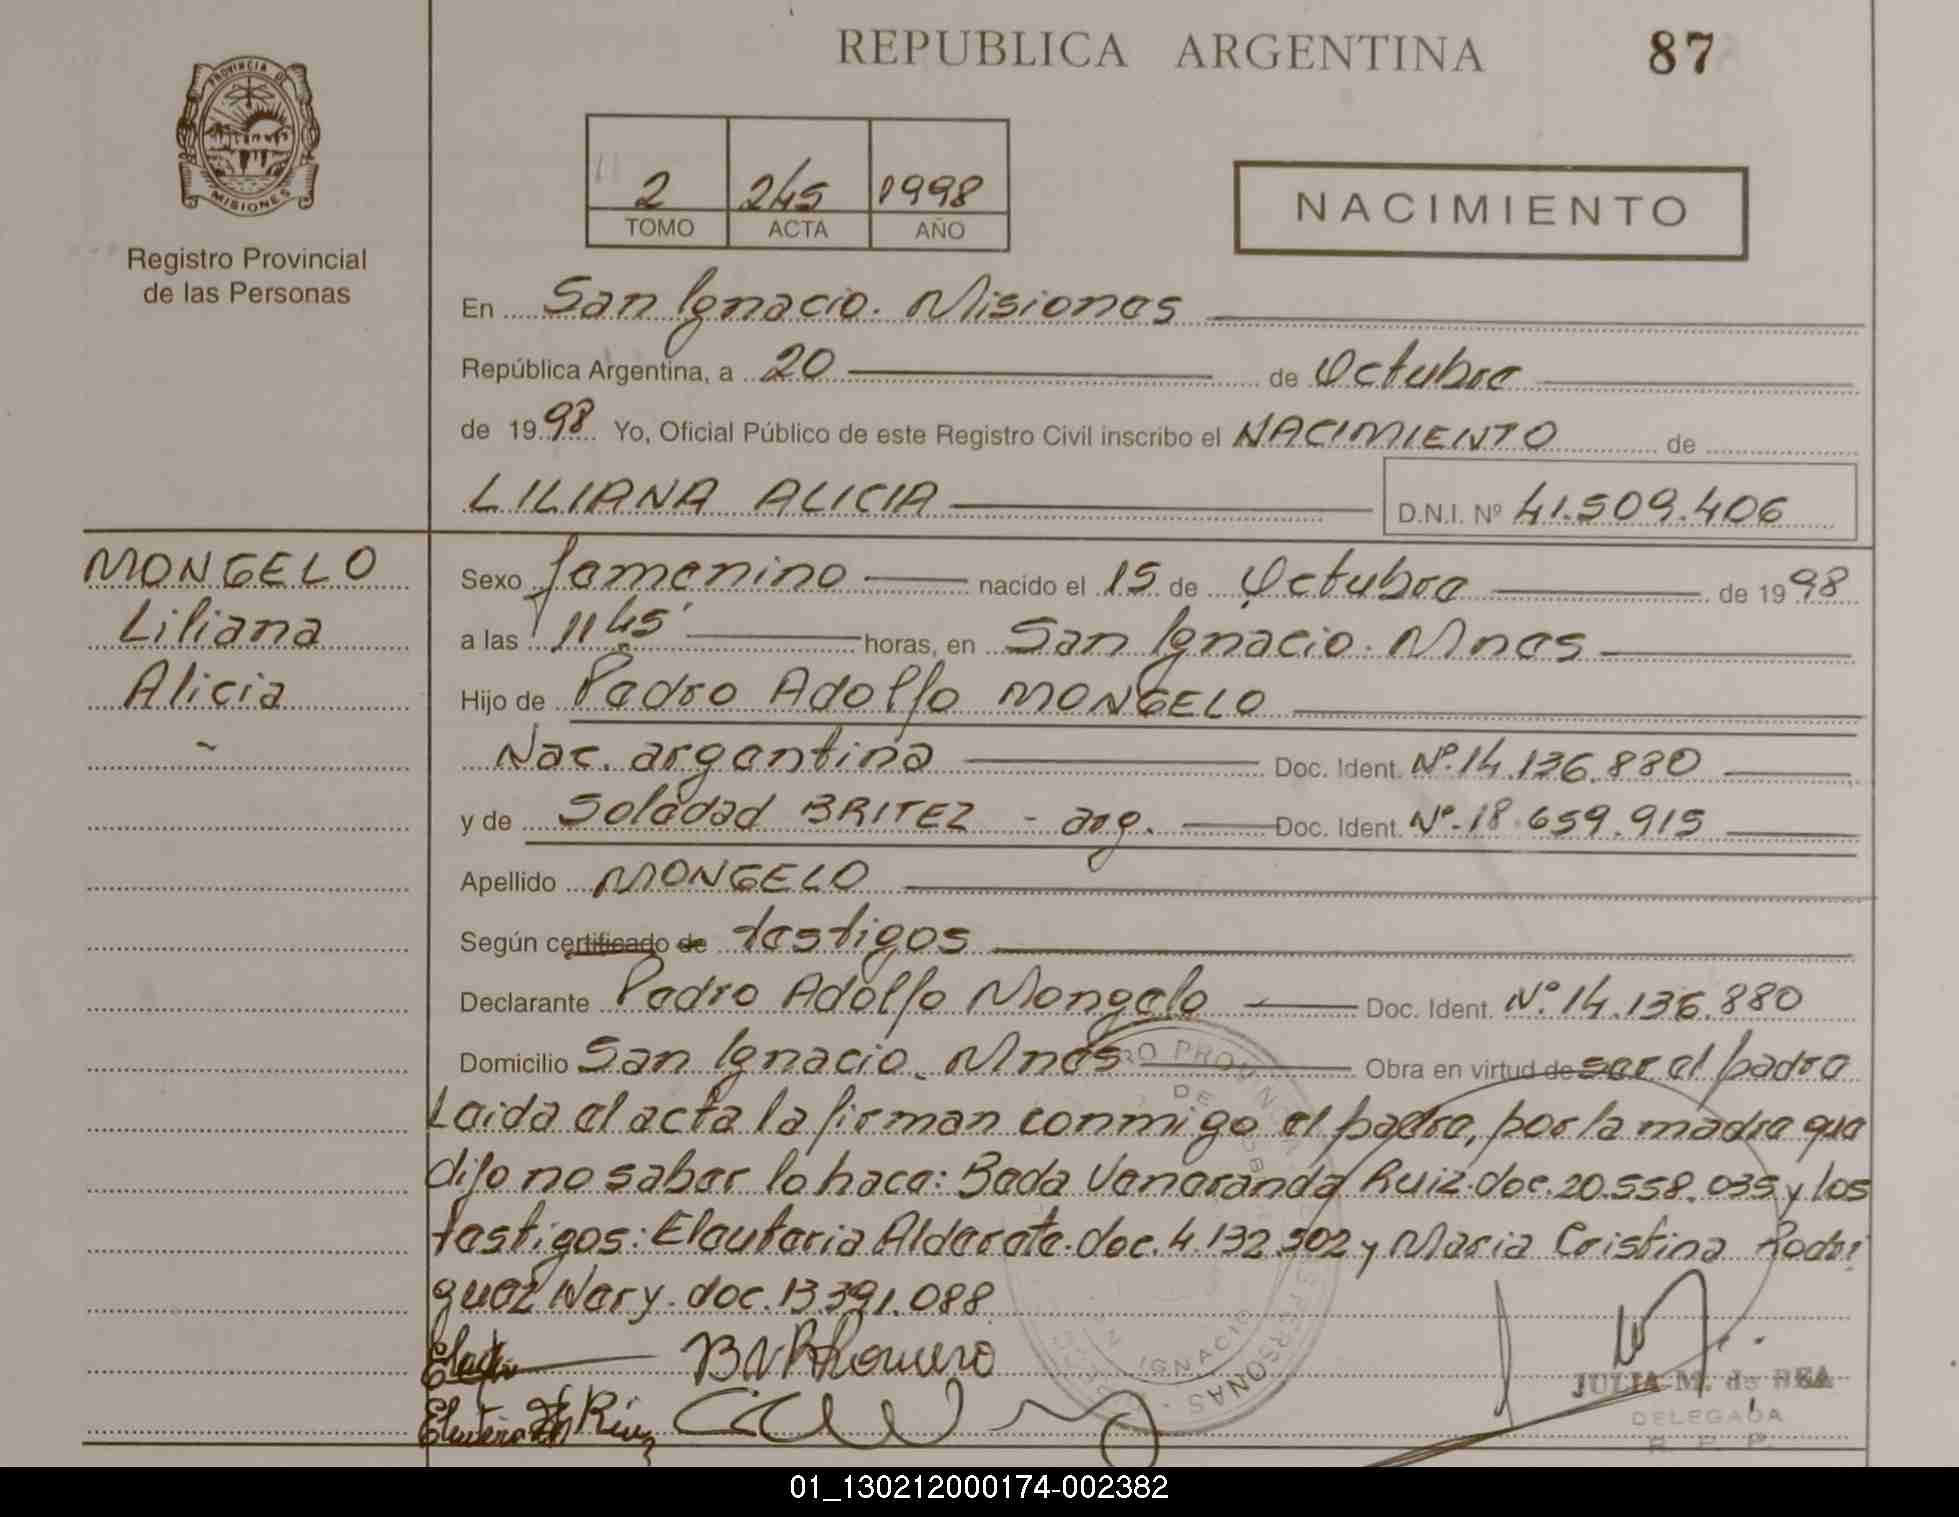 REPUBLICA ARGENTINA 87
PROVINCIA DE
MISIONES
Registro Provincial
de las Personas
2 245 1998
TOMO ACTA AÑO
NACIMIENTO
En San Ignacio. Misiones
República Argentina, a 20 de Octubre
de 1998 Yo, Oficial Público de este Registro Civil inscribo el NACIMIENTO de
LILIANA ALICIA D.N.I. Nº 41.509.406
MONGELO
Liliana
Alicia
Sexo femenino nacido el 15 de Octubre de 1998
a las 11 45' horas, en San Ignacio. Mnes
Hijo de Pedro Adolfo MONGELO
Nac. argentina Doc. Ident. Nº.14.136.880
y de Soledad BRITEZ - arg. Doc. Ident. Nº.18.659.915
Apellido MONGELO
Según certificado de testigos
Declarante Pedro Adolfo Mongelo Doc. Ident. Nº.14.136.880
Domicilio San Ignacio. Mnes Obra en virtud de ser el padre
Leida el acta la firman conmigo el padre, por la madre que
dijo no saber lo hace: Beda Veneranda Ruiz.doc.20.558.035 y los
testigos: Eleuteria Alderete.doc.4.132.502 y Maria Cristina Rodri
guez Wary.doc.13.391.088
JULIA M. de BEA
DELEGADA
R. P. P.
01_130212000174-002382